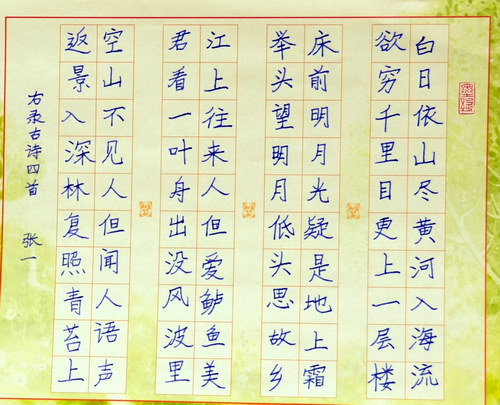 白日依山尽黄河入海流
欲穷千里目更上一层楼
床前明月光疑是地上霜
举头望明月低头思故乡
江上往来人但爱鲈鱼美
君看一叶舟出没风波里
空山不见人但闻人语声
返景入深林复照青苔上
右录古诗四首
张一